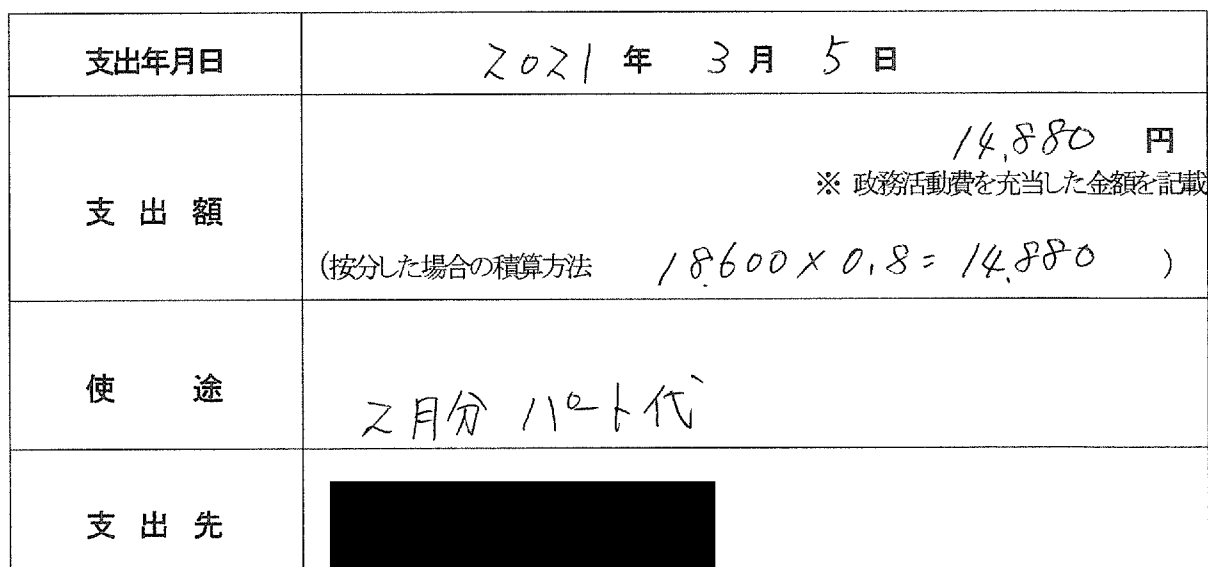 支出年月日 2021 年 3 月 5 日
14,880 円
※ 政務活動費を充当した金額を記載
支出額
(按分した場合の積算方法 18,600×0.8=14,880 )
使途 2月分 パート代
支出先